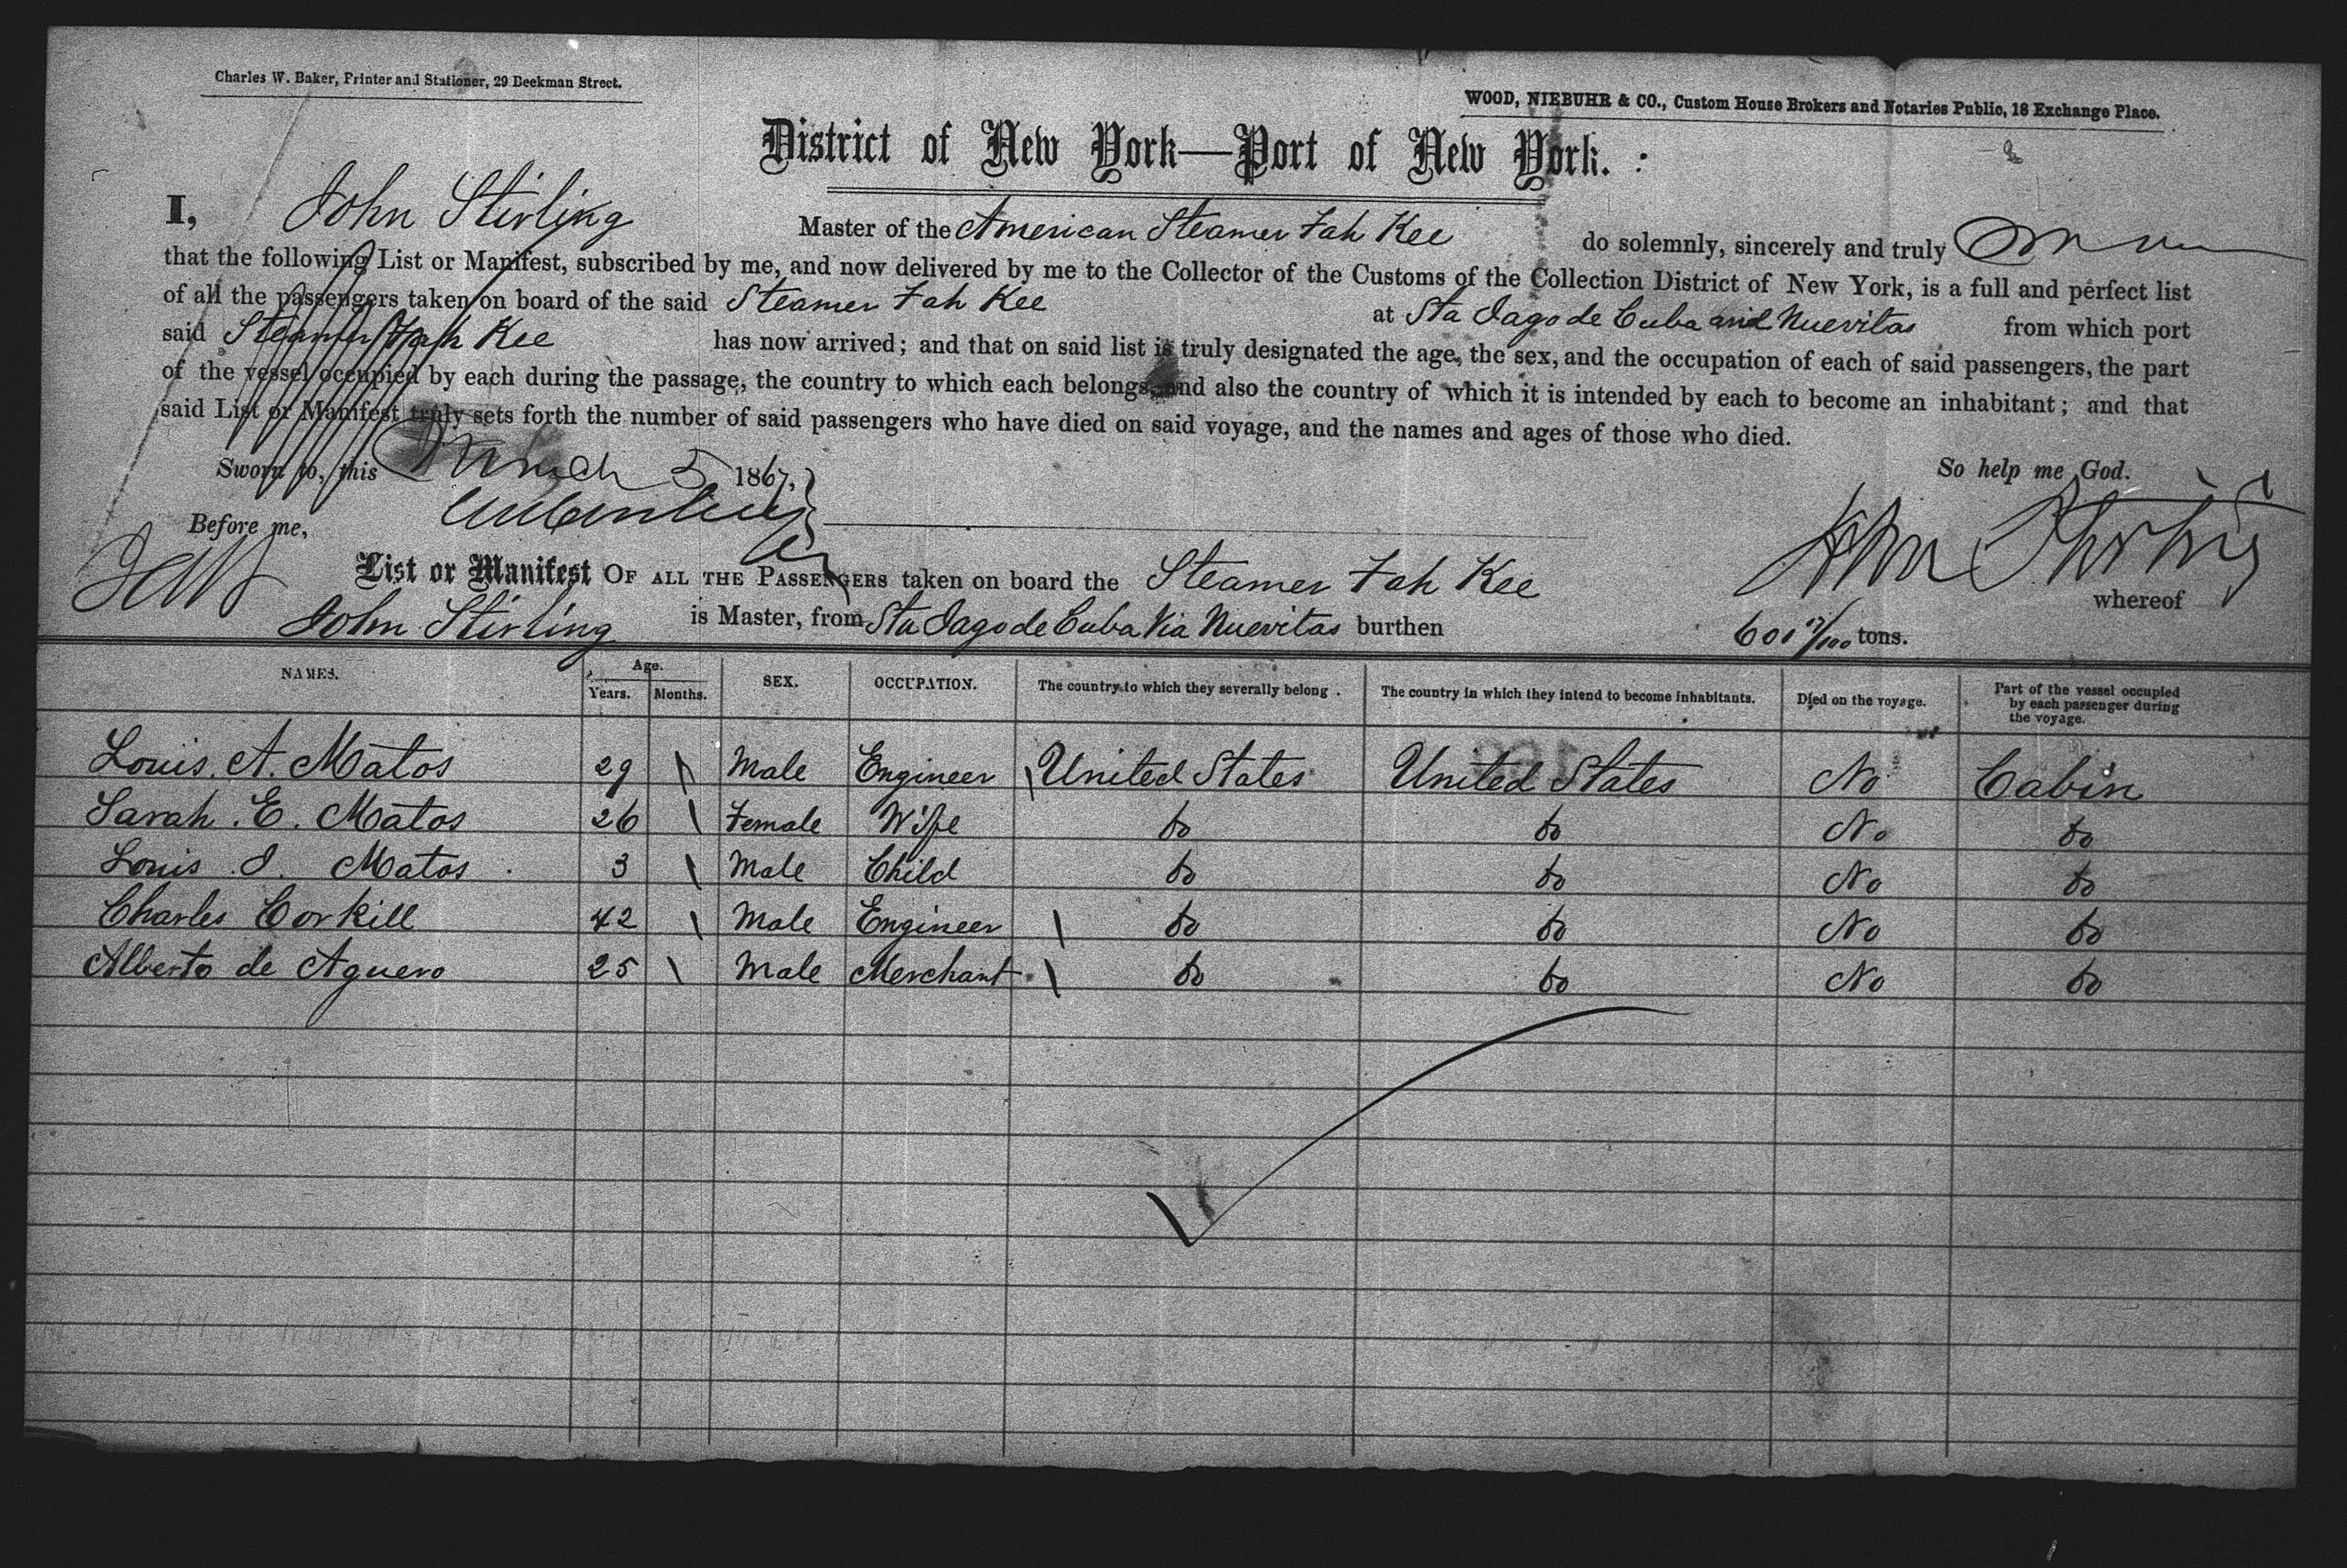 Charles W. Baker, Printer and Stationer, 29 Beekman Street.
WOOD, NIEBUHR & CO., Custom House Brokers and Notaries Public, 18 Exchange Place.
District of New York—Port of New York.
I, John Stirling Master of the American Steamer Fah Kee do solemnly, sincerely and truly
that the following List or Manifest, subscribed by me, and now delivered by me to the Collector of the Customs of the Collection District of New York, is a full and perfect list
of all the passengers taken on board of the said Steamer Fah Kee at Sta Jago de Cuba and Nuevitas from which port
said Steamer Fah Kee has now arrived; and that on said list is truly designated the age, the sex, and the occupation of each of said passengers, the part
of the vessel occupied by each during the passage, the country to which each belongs, and also the country of which it is intended by each to become an inhabitant; and that
said List or Manifest truly sets forth the number of said passengers who have died on said voyage, and the names and ages of those who died.
Sworn to, this March 5 1867, So help me God.
Before me, John Stirling
List or Manifest OF ALL THE PASSENGERS taken on board the Steamer Fah Kee whereof
John Stirling is Master, from Sta Jago de Cuba Via Nuevitas burthen 601 17/100 tons.
NAMES. Age. Years. Months. SEX. OCCUPATION. The country to which they severally belong. The country in which they intend to become inhabitants. Died on the voyage. Part of the vessel occupied by each passenger during the voyage.
Louis. A. Matos 29 Male Engineer United States United States No Cabin
Sarah. E. Matos 26 Female Wife do do No do
Louis. J. Matos 3 Male Child do do No do
Charles Corkill 42 Male Engineer do do No do
Alberto de Aguero 25 Male Merchant do do No do